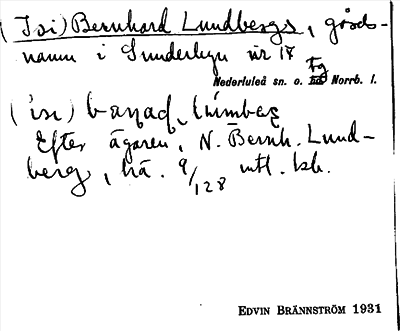 (Isi) Bernhard Lundbergs, gårds-
namn i Sunderbyn nr 17
Nederluleå sn. o. Norrb. l.
Efter ägaren, N. Bernh. Lund-
berg, hä. 9/128 mtl. kh.
EDVIN BRÄNNSTRÖM 1931